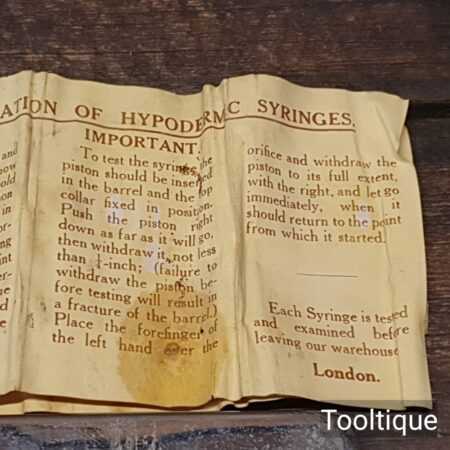 ATION OF HYPODERMIC SYRINGES.
and
bow
old
on
in
or-
ng
int
er-
ue
he
IMPORTANT.
To test the syringe, the
piston should be inserted
in the barrel and the top
collar fixed in position.
Push the piston right
down as far as it will go,
then withdraw it, not less
than ¼-inch; (failure to
withdraw the piston be-
fore testing will result in
a fracture of the barrel.)
Place the forefinger of
the left hand over the
orifice and withdraw the
piston to its full extent,
with the right, and let go
immediately, when it
should return to the point
from which it started.
Each Syringe is tested
and examined before
leaving our warehouse
London.
Tooltique